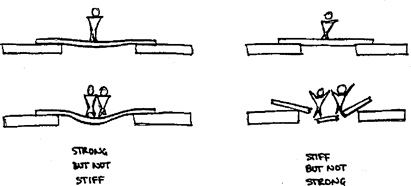 STRONG
BUT NOT
STIFF
STIFF
BUT NOT
STRONG